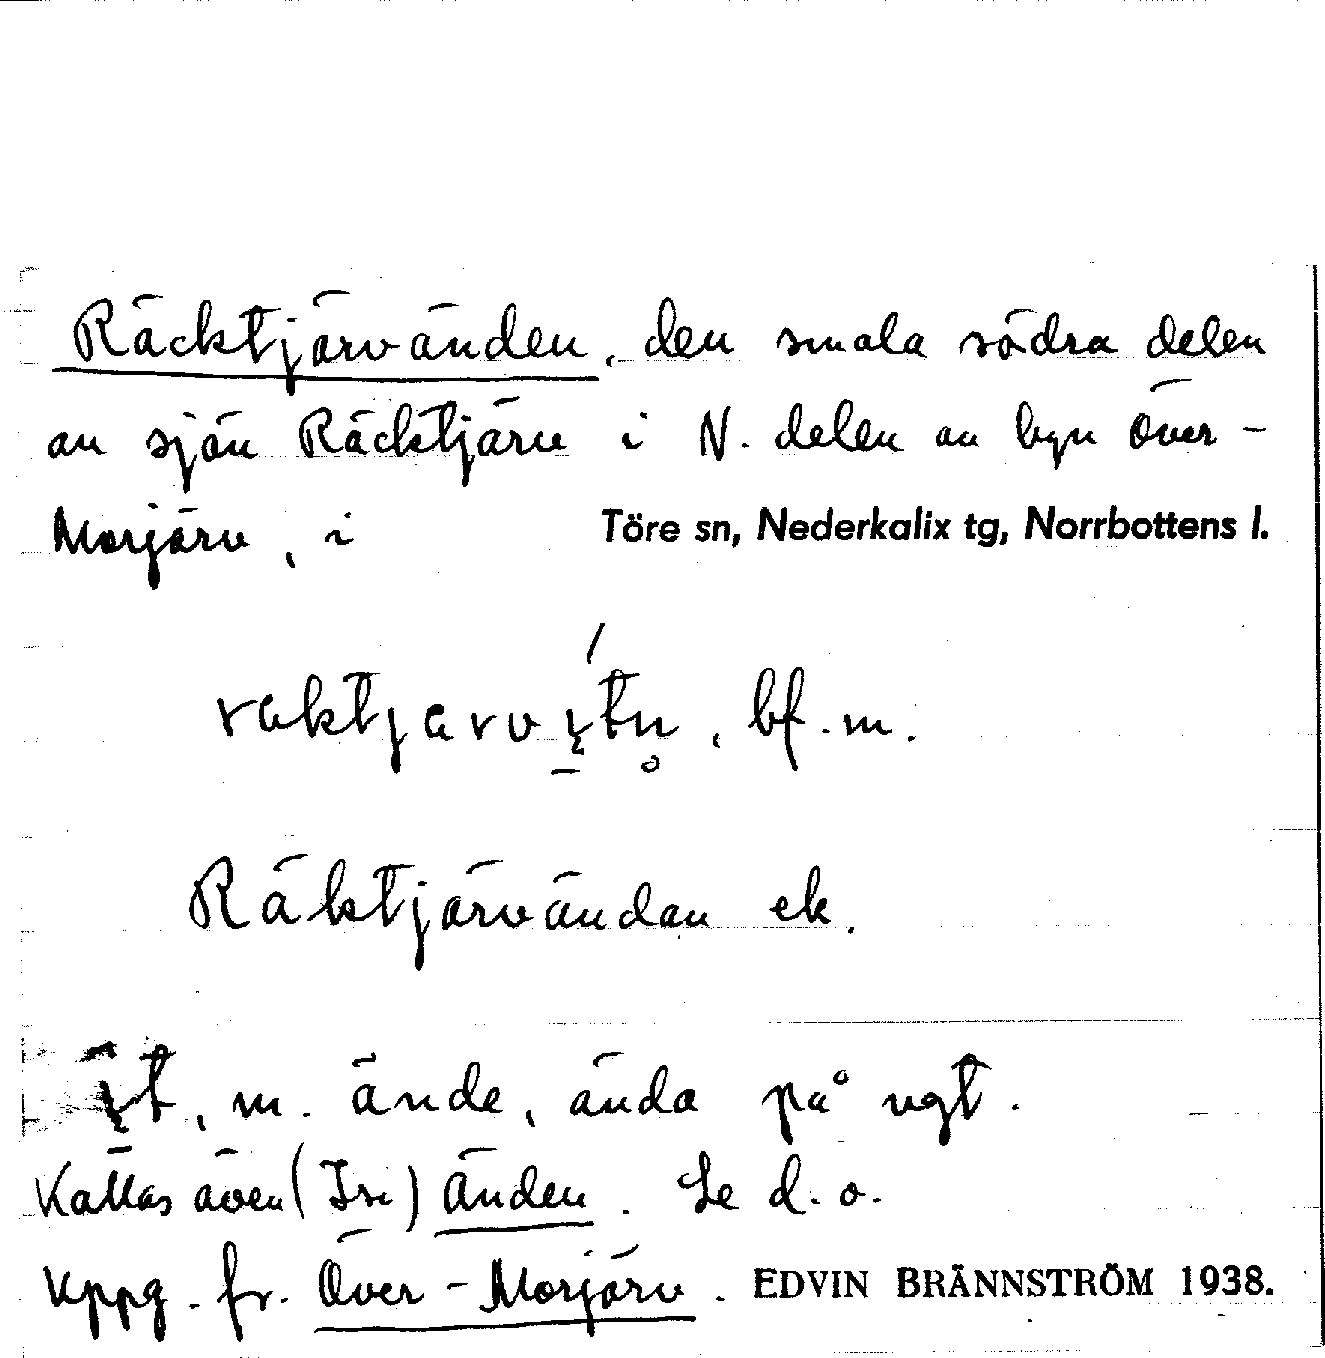 Räcktjärvänden, den smala södra delen
av sjön Räcktjärv i N. delen av byn Över-
Morjärv, i Töre sn, Nederkalix tg, Norrbottens l.
bf. m.
Räktjärvändan ek.
m. ände, ända på ngt.
Kallas även ( ) Änden. Se d. o.
Uppg. fr. Över-Morjärv. EDVIN BRÄNNSTRÖM 1938.